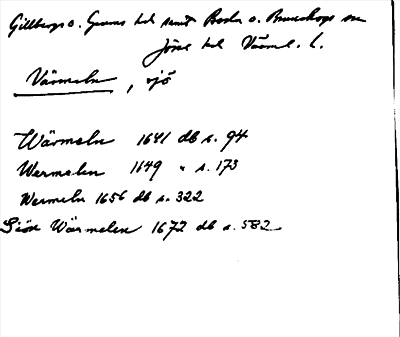 Gillbergs o. Grums hd samt Boda o. Brunskogs sn
Jösse hd Värml. l.
Värmeln, sjö
Wärmeln 1641 db s. 94
Wermelen 1649 " s. 173
Wermeln 1656 db s. 322
Siön Wärmelen 1672 db s. 582